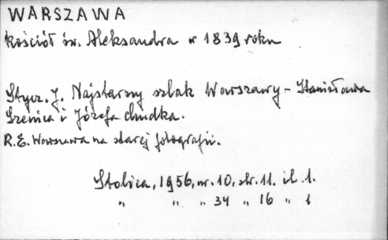 WARSZAWA
Kościół św. Aleksandra w 1839 roku
Stycz. J. Najstarszy szlak Warszawy - Stanisława
i Józefa
R.E. Warszawa na starej fotografii.
Stolica, 1956, nr. 10, str. 11. il. 1.
" " " 34 " 16 " 1